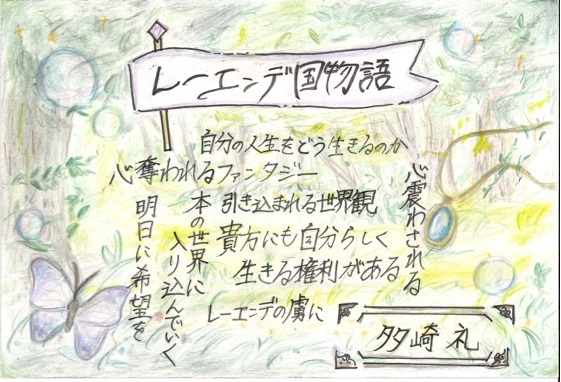 レーエンデ国物語
自分の人生をどう生きるのか
心奪われるファンタジー
心震わされる
引き込まれる世界観
本の世界に
入り込んでいく
明日に希望を
貴方にも自分らしく
生きる権利がある
レーエンデの虜に
多崎 礼